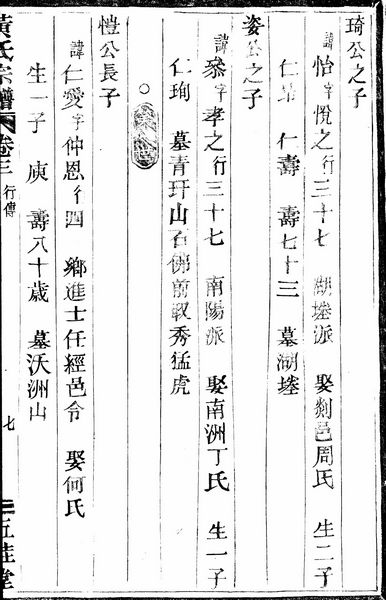 琦公之子
諱怡字悅之行三十七 湖塍派 娶剡邑周氏 生二子
仁 仁壽 壽七十三 墓湖塍
姿公之子
諱叅字孝之行三十七 南陽派 娶南洲丁氏 生一子
仁珣 墓青玗山石佛前
愷公長子
諱仁愛字仲恩行四 鄉進士任經邑令 娶何氏
生一子 庚 壽八十歲 墓沃洲山
黃氏宗譜 卷三 行傳 七 五桂堂